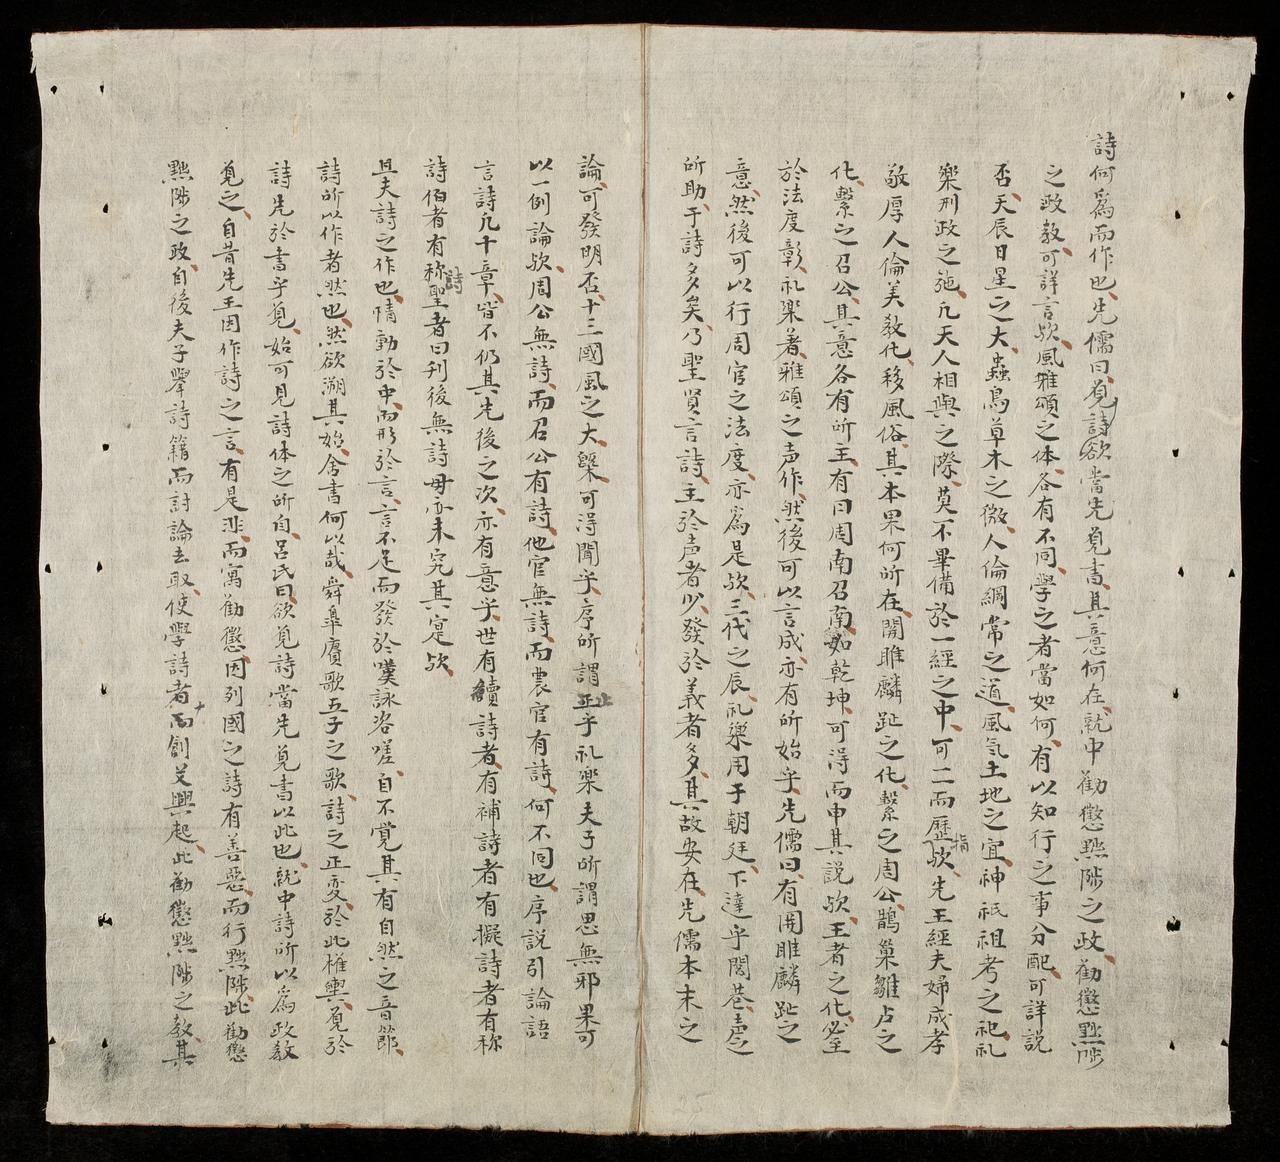 詩何爲而作也先儒曰覓詩欲當先覓書其意何在就中勸懲黜陟之政勸懲黜陟
之政教可詳言欤風雅頌之体各有不同學之者當如何有以知行之事分配可詳說
否天辰日星之大蟲鳥草木之微人倫綱常之道風氣土地之宜神祇祖考之祀礼
樂刑政之施凢天人相與之際莫不畢備於一經之中可一二而歷指欤先王經夫婦成孝
敬厚人倫美教化移風俗其本果何所在関雎麟趾之化繫之周公鵲巢雛占之
化繫之召公其意各有所主有曰周南召南如乾坤可淂而申其說欤王者之化必至
於法度彰礼楽著雅頌之声作然後可以言成亦有所始乎先儒曰有関雎麟趾之
意然後可以行周官之法度亦爲是欤三代之辰礼樂用于朝廷下達乎閭巷声之
所助于詩多矣乃聖賢言詩主於声者少發於義者多其故安在先儒本末之
論可發明否十三國風之大槩可淂聞乎序所謂止乎礼楽夫子所謂思無邪果可
以一例論欤周公無詩而召公有詩他官無詩而農官有詩何不同也序說引論語
言詩凢十章皆不仍其先後之次亦有意乎世有續詩者有補詩者有擬詩者有称
詩伯者有称詩聖者曰刋後無詩毋亦未究其寔欤
且夫詩之作也情動於中而形於言言不足而發於嘆詠咨嗟自不覺其有自然之音節
詩所以作者然也然欲溯其始舍書何以哉舜皐賡歌五子之歌詩之正変於此権輿覓於
詩先於書乎覓始可見詩体之所自呂氏曰欲覓詩當先覓書以此也就中詩所以爲政教
覓之自昔先王因作詩之言有是非而寓勸懲因列國之詩有善惡而行黜陟此勸懲
黜陟之政自後夫子舉詩籍而討論去取使學詩者而創艾興起此勸懲黜陟之教其